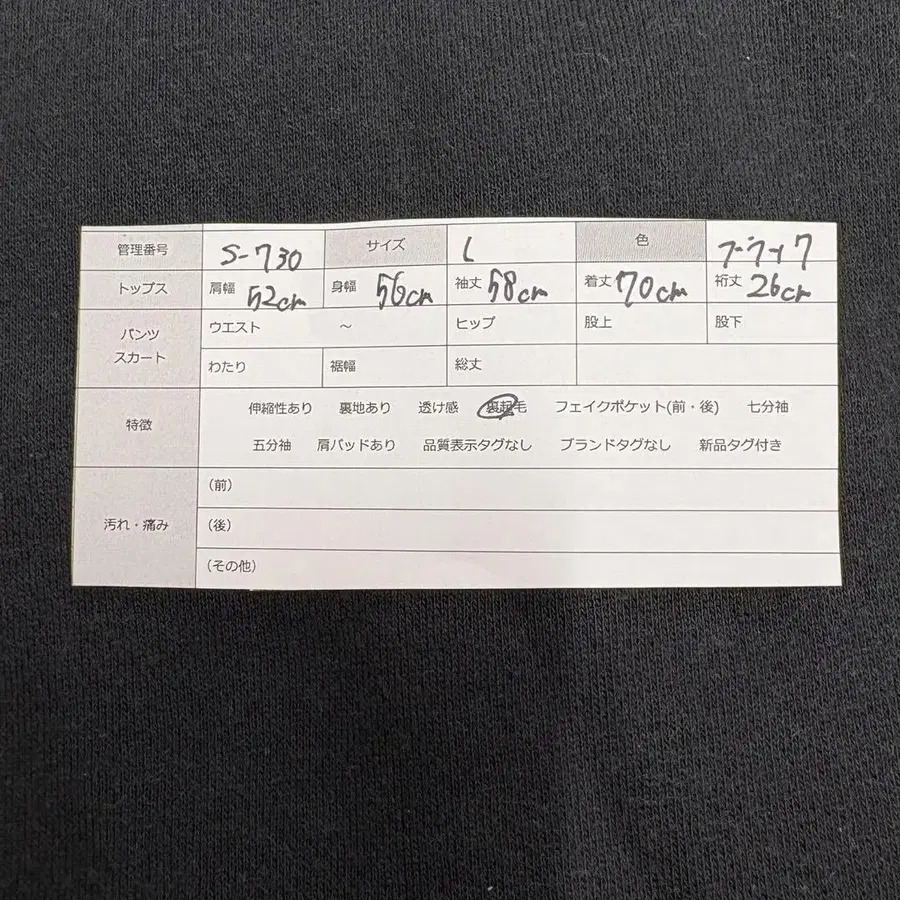 管理番号 S-730 サイズ L 色
トップス 肩幅 52cm 身幅 56cm 袖丈 58cm 着丈 70cm 裄丈 26cm
パンツ スカート ウエスト ～ ヒップ 股上 股下
わたり 裾幅 総丈
特徴 伸縮性あり 裏地あり 透け感 裏起毛 フェイクポケット(前・後) 七分袖
五分袖 肩パッドあり 品質表示タグなし ブランドタグなし 新品タグ付き
汚れ・痛み (前)
(後)
(その他)